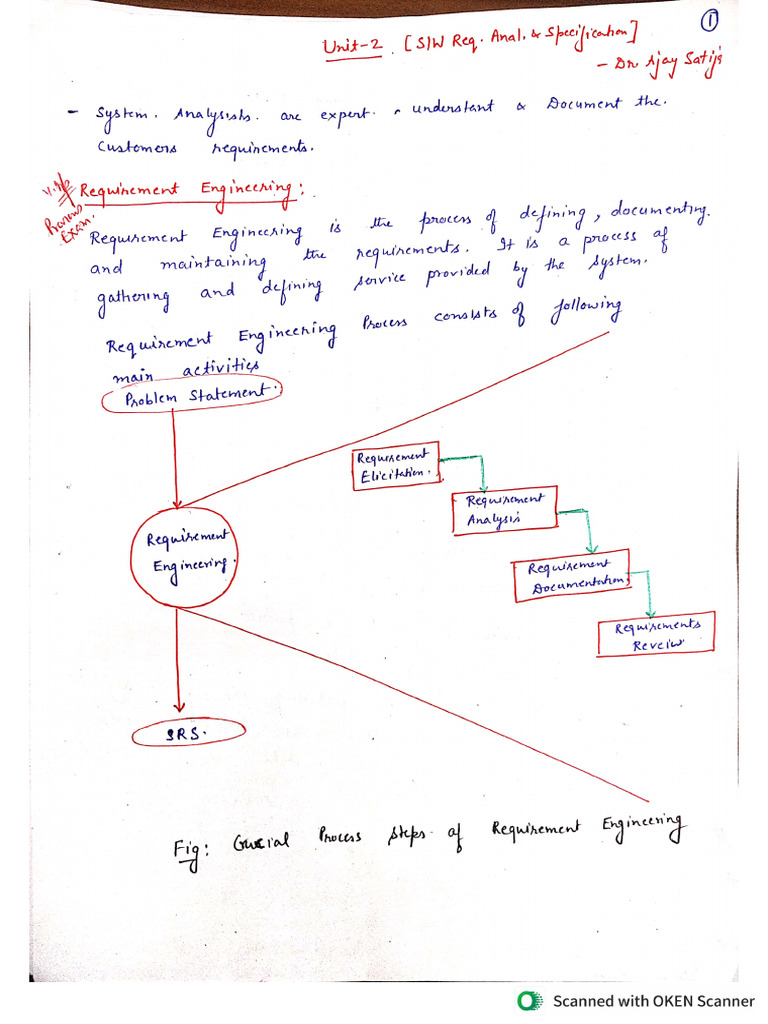 ①
Unit-2 [S/W Req. Anal. & Specification]
- Dr. Ajay Satija
- System. Analysists. are expert. understant & Document the.
Customers requirements.
V.Imp
Previous
Exam.
Requirement Engineering:
Requirement Engineering is the process of defining, documenting.
and maintaining the requirements. It is a process of
gathering and defining service provided by the system.
Requirement Engineering Process consists of following
main activities
Problem Statement.
Requirement
Elicitation.
Requirement
Analysis
Requirement
Engineering.
Requirement
Documentation
Requirements
Reveiw
SRS.
Fig: Crucial Process steps. of Requirement Engineering
Scanned with OKEN Scanner